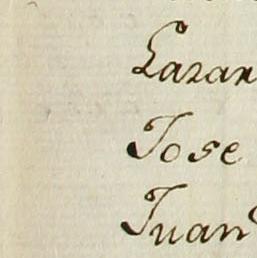 Lazar
Jose
Juan